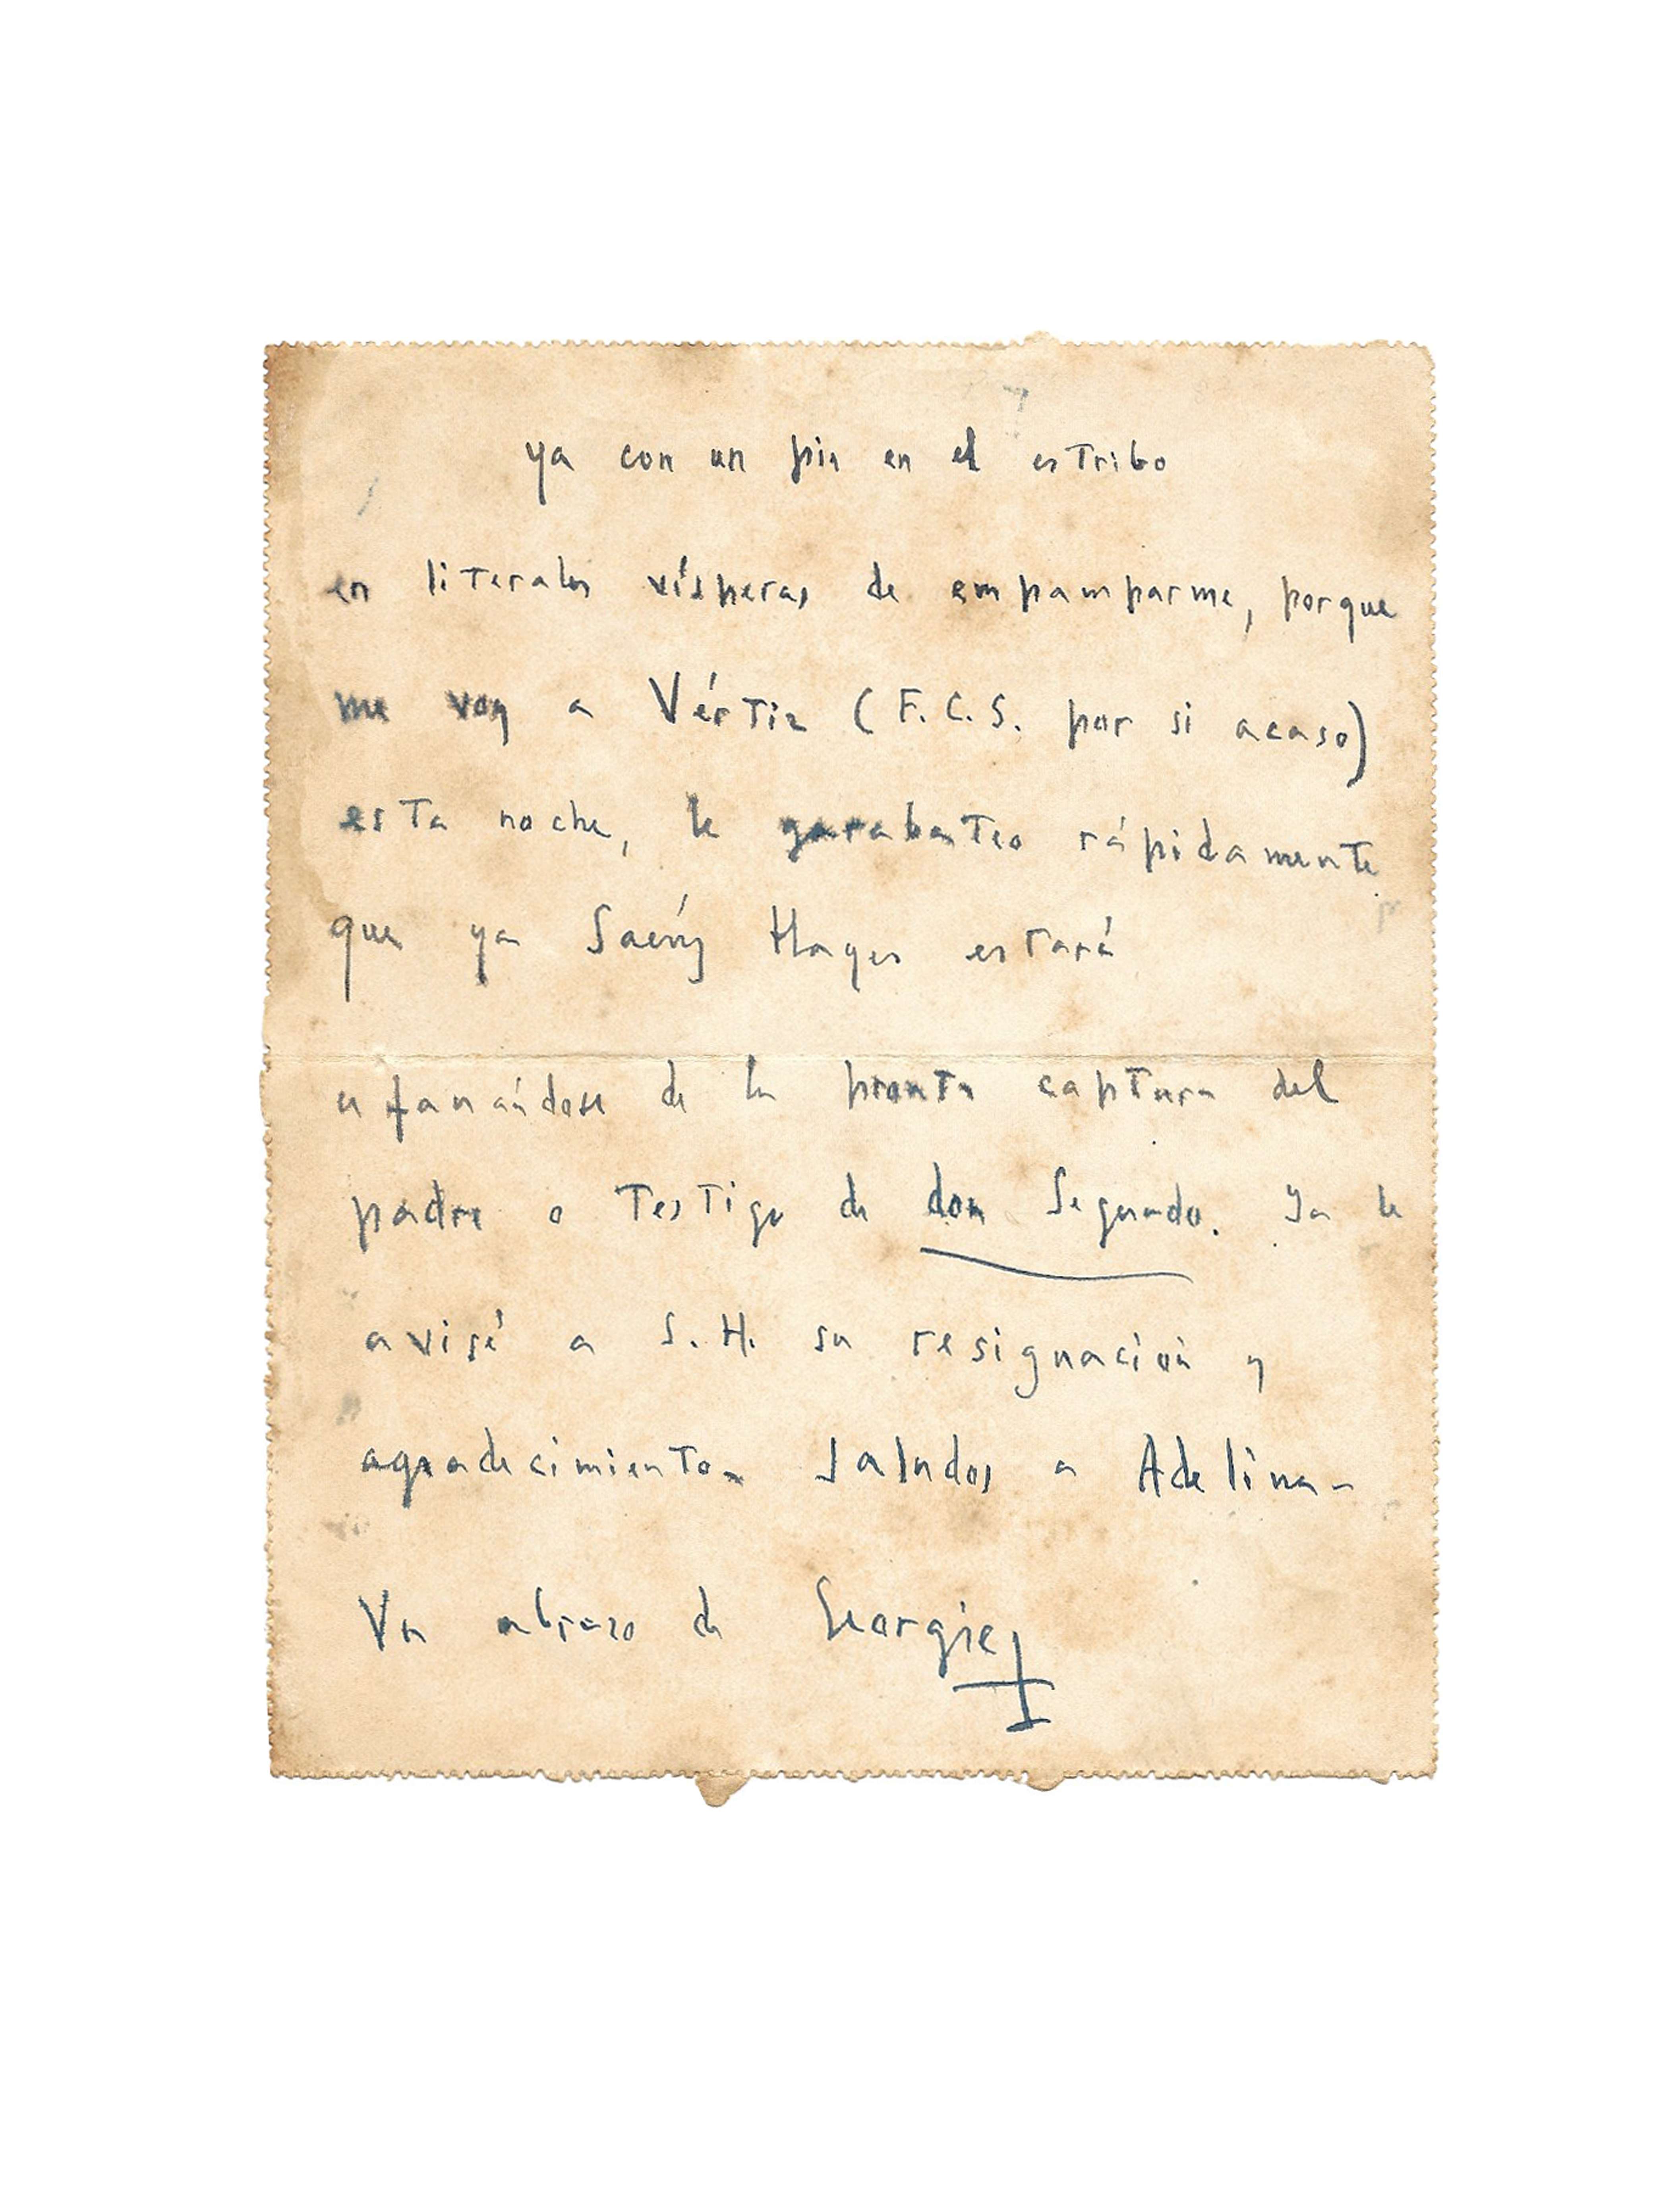 ya con un pie en el estribo
en literales vísperas de empamparme, porque
me voy a Vértiz (F.C.S. por si acaso)
esta noche, le garabateo rápidamente
que ya Saénz Hayes estará
ufanándose de la pronta captura del
padre o testigo de don Segundo. Ya le
avisé a S.H. su resignación y
agradecimiento. Saludos a Adelina -
Un abrazo de Georgie